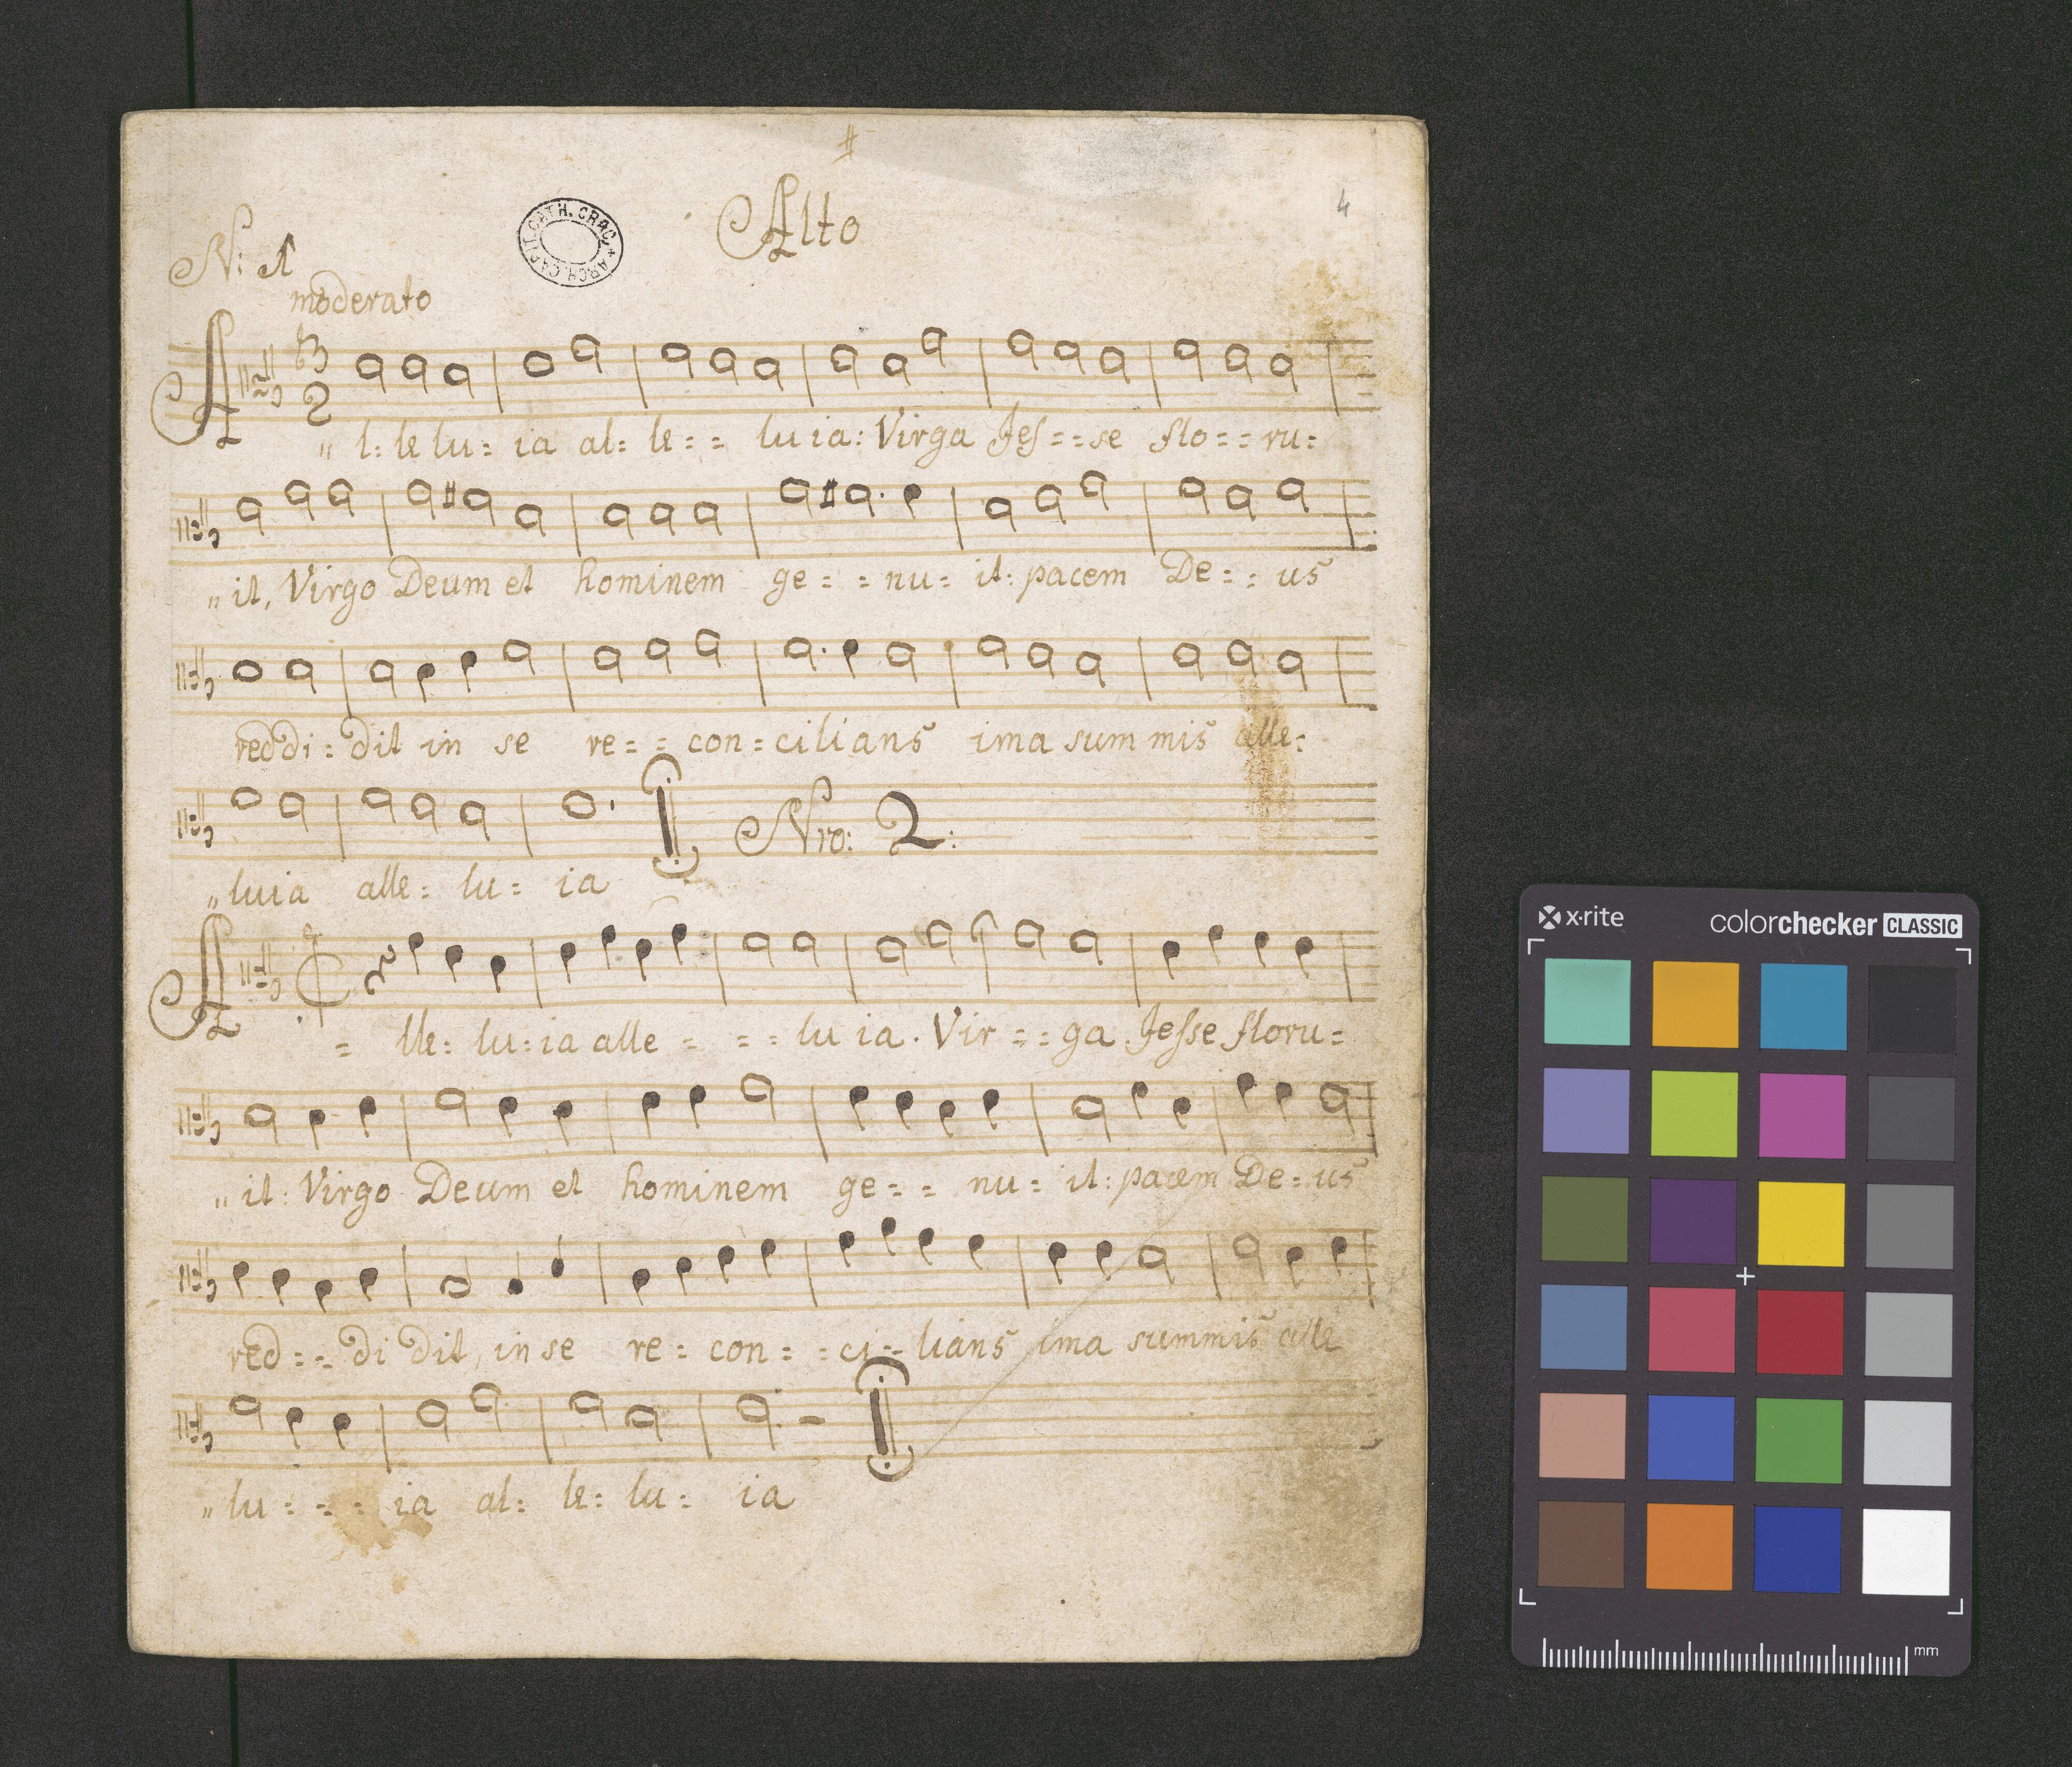 #
Alto
4
ARCH. CAPIT. CATH. CRAC.
N: 1
moderato
3
2
A " l: le lu: ia al: le: : lu ia: Virga Jes: : se flo: : ru:
" it, Virgo Deum et hominem ge: : nu: it: pacem De: : us
reddi: dit in se re: : con: cilians ima sum mis alle:
Nro: 2:
" luia alle: lu: ia
A = lle: lu: ia alle = : : lu ia. Vir : : ga. Jesse floru:
" it: Virgo Deum et hominem ge: : nu: it: pacem De: us
red: : di dit, in se re: con: : ci: lians ima summis alle
" lu: : : ia al: le: lu: ia
x-rite colorchecker CLASSIC
mm